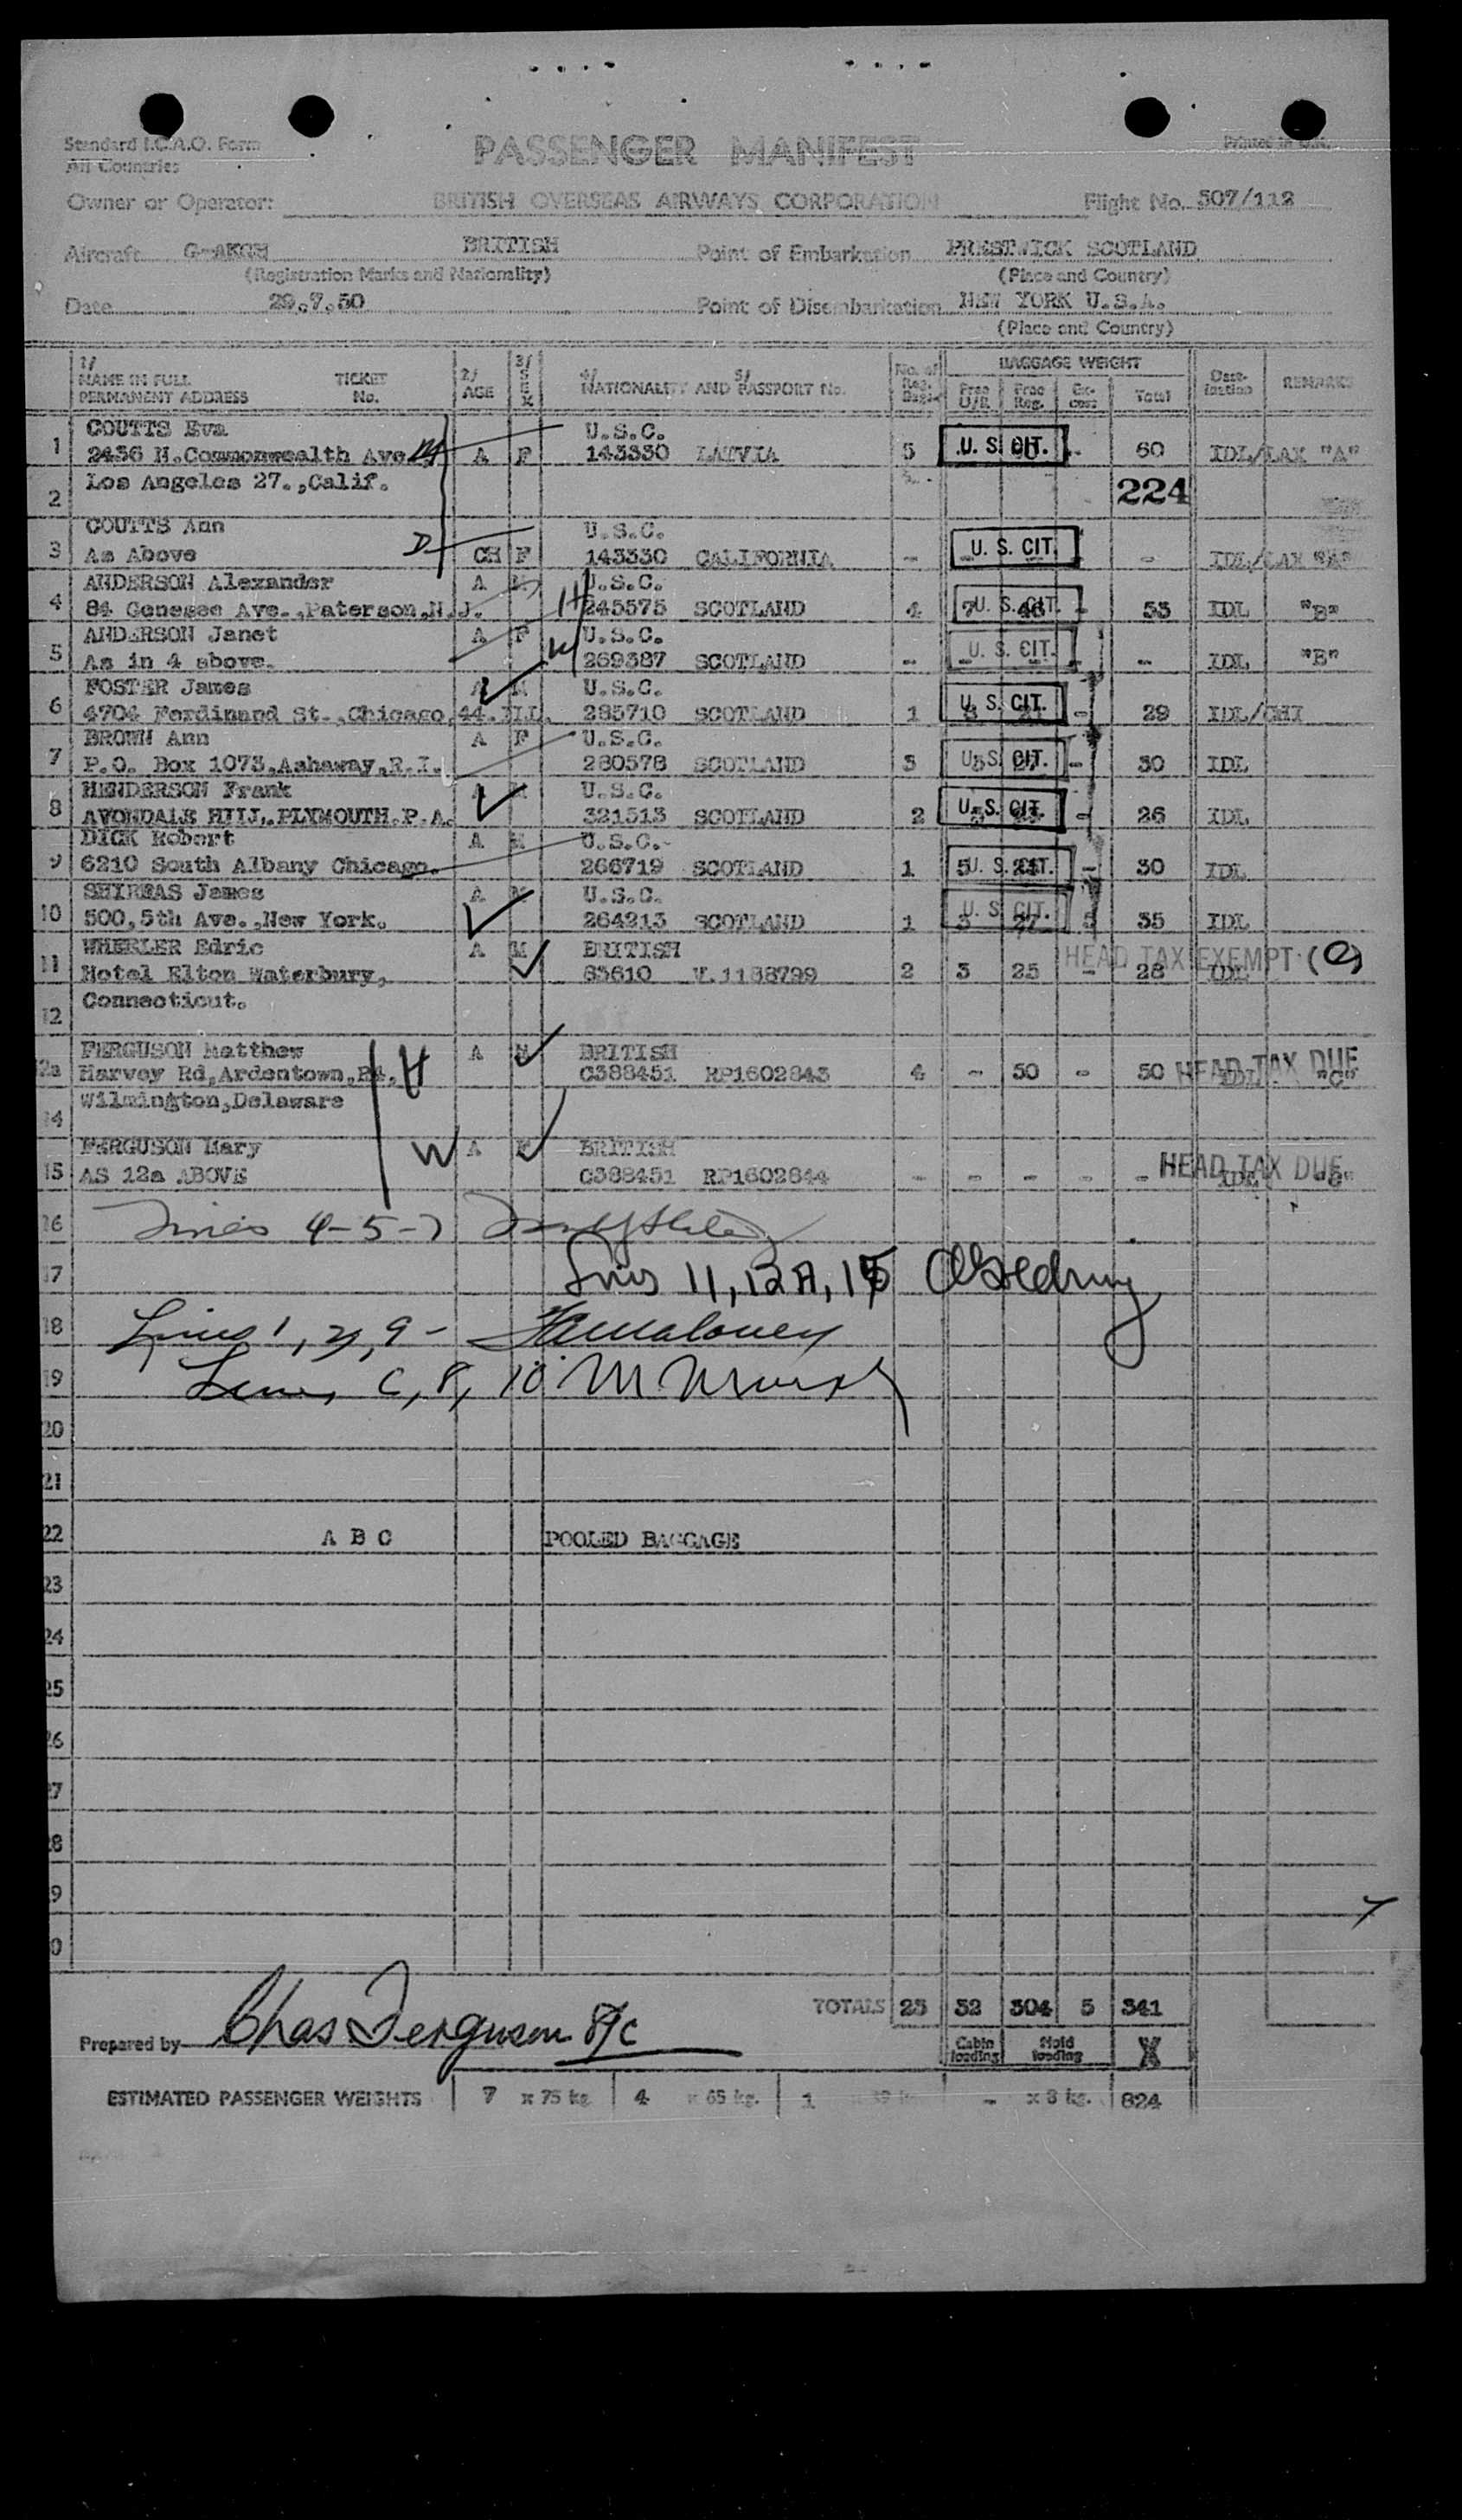 Standard I.C.A.O. Form
All Countries
PASSENGER MANIFEST
Printed in U.K.
Owner or Operator: BRITISH OVERSEAS AIRWAYS CORPORATION Flight No. 507/112
Aircraft BRITISH Point of Embarkation PRESTWICK SCOTLAND
(Registration Marks and Nationality) (Place and Country)
Date 29.7.50 Point of Disembarkation NEW YORK U.S.A.
(Place and Country)
1/ NAME IN FULL PERMANENT ADDRESS TICKET No. 2/ AGE 3/ SEX 4/ NATIONALITY AND 5/ PASSPORT No. No. of Reg. Bags BAGGAGE WEIGHT Free U/R Free Reg. Ex-cess Total Dest-ination REMARKS
COUTTS Eva U.S.C.
1 2436 N.Commonwealth Ave M A F 143330 LATVIA 5 U. S. CIT. - 60 IDL/LAX "A"
2 Los Angeles 27.,Calif. 224
COUTTS Ann U.S.C.
3 As Above D CH F 143330 CALIFORNIA - U. S. CIT. - IDL/LAX "A"
ANDERSON Alexander A M H U.S.C.
4 84 Genesee Ave.,Paterson,N.J. 245575 SCOTLAND 4 7 U. S. CIT. 46 - 53 IDL "B"
ANDERSON Janet A F W U.S.C.
5 As in 4 above. 269387 SCOTLAND - U. S. CIT. - - IDL "B"
FOSTER James A M U.S.C.
6 4704 Ferdinand St.,Chicago,44.ILL. 285710 SCOTLAND 1 8 U. S. CIT. 21 - 29 IDL/CHI
BROWN Ann A F U.S.C.
7 P.O. Box 1073,Ashaway,R.I. 280578 SCOTLAND 3 U. S. CIT. - 30 IDL
HENDERSON Frank A M U.S.C.
8 AVONDALE HILL,PLYMOUTH.P.A. 321513 SCOTLAND 2 U. S. CIT. - 26 IDL
DICK Robert A M U.S.C.
9 6210 South Albany Chicago. 266719 SCOTLAND 1 5 U. S. CIT. - 30 IDL
SHIREAS James A M U.S.C.
10 500,5th Ave.,New York. 264213 SCOTLAND 1 3 U. S. CIT. 27 5 35 IDL
WHEELER Edric A M BRITISH HEAD TAX EXEMPT (e)
11 Hotel Elton Waterbury, 83610 V.1188799 2 3 25 - 28 IDL
12 Connecticut.
FERGUSON Matthew A M BRITISH HEAD TAX DUE
12a Harvey Rd,Ardentown,Rd. H C388451 RP1602843 4 - 50 - 50 IDL "C"
14 Wilmington,Delaware
FERGUSON Mary W A F BRITISH HEAD TAX DUE
15 AS 12a ABOVE C388451 RP1602844 - - - - - IDL "C"
16 Lines 4-5-7
17 Lines 11, 12A, 15
18 Lines 1, 3, 9 -
19 Lines 6, 8, 10
20
21
22 A B C POOLED BAGGAGE
23
24
25
26
27
28
29
30
TOTALS 23 32 304 5 341
Prepared by Chas Ferguson T/C
Cabin loading Hold loading X
ESTIMATED PASSENGER WEIGHTS 7 x 75 kg. 4 x 65 kg. 1 x 39 kg. - x 8 kg. 824